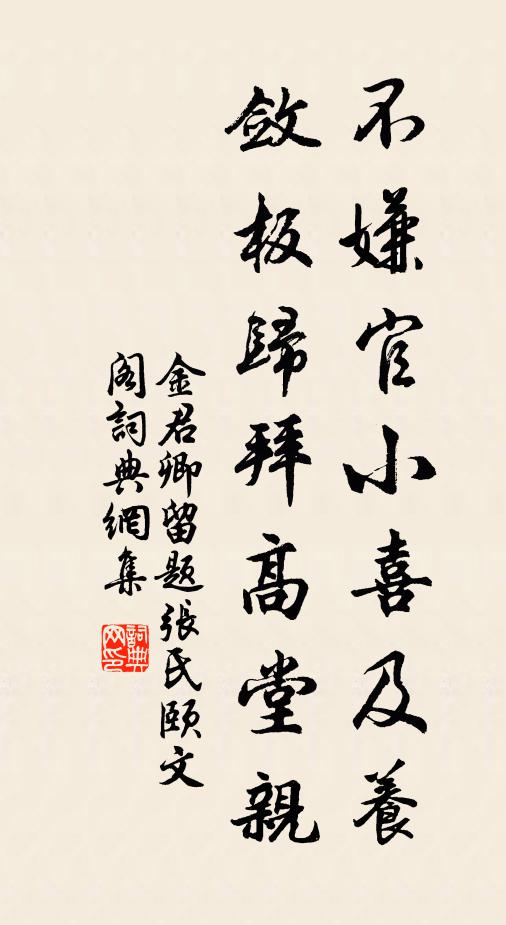 不嫌官小喜及養
斂板歸拜高堂親
金君卿留題張氏頤文
閣詞典網集
詞典網印